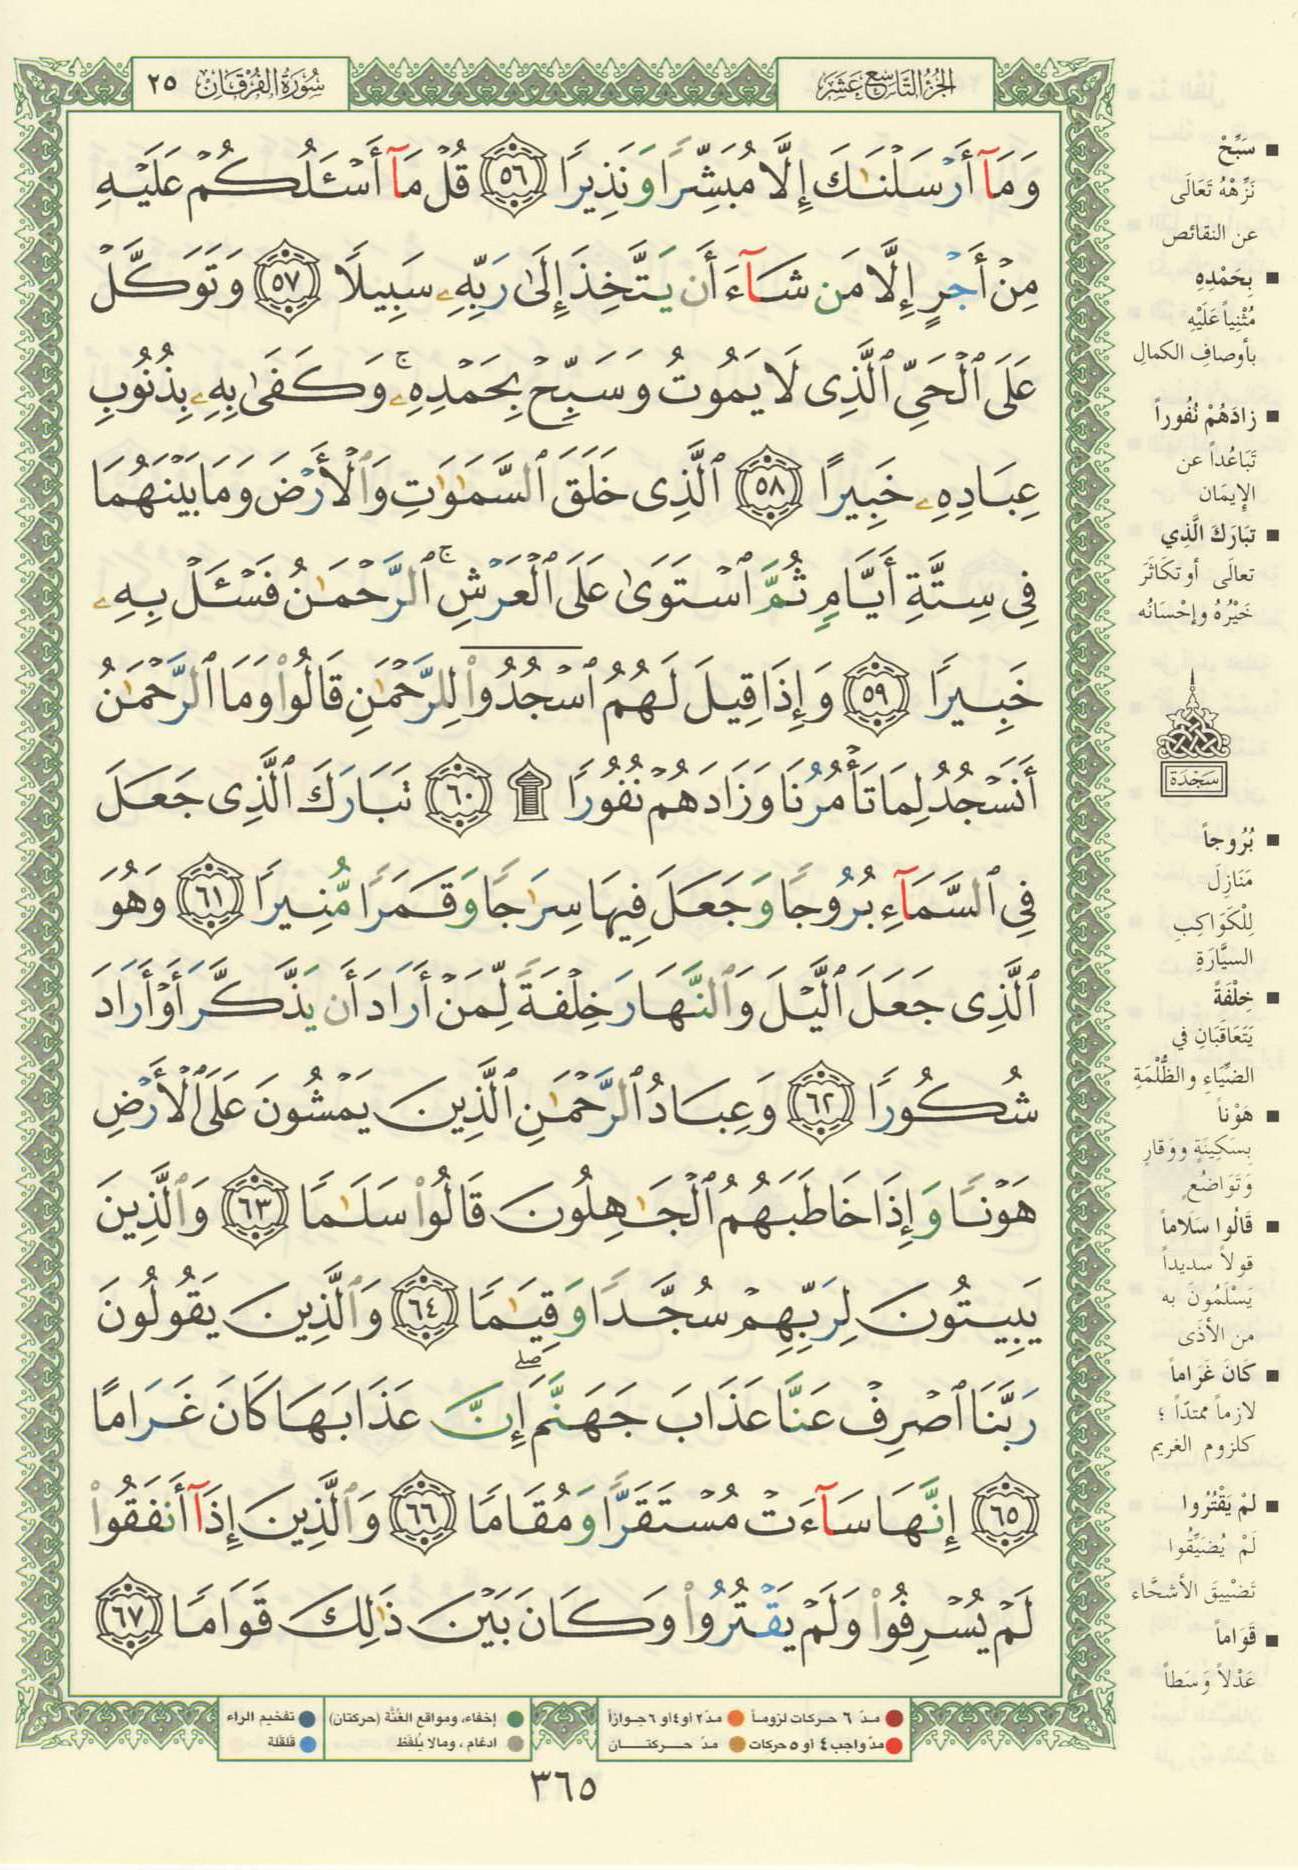 الجزء التاسع عشر
سورة الفرقان ٢٥
وَمَآ أَرْسَلْنَٰكَ إِلَّا مُبَشِّرًا وَنَذِيرًا ٥٦ قُلْ مَآ أَسْـَٔلُكُمْ عَلَيْهِ
مِنْ أَجْرٍ إِلَّا مَن شَآءَ أَن يَتَّخِذَ إِلَىٰ رَبِّهِۦ سَبِيلًا ٥٧ وَتَوَكَّلْ
عَلَى ٱلْحَىِّ ٱلَّذِى لَا يَمُوتُ وَسَبِّحْ بِحَمْدِهِۦ ۚ وَكَفَىٰ بِهِۦ بِذُنُوبِ
عِبَادِهِۦ خَبِيرًا ٥٨ ٱلَّذِى خَلَقَ ٱلسَّمَٰوَٰتِ وَٱلْأَرْضَ وَمَا بَيْنَهُمَا
فِى سِتَّةِ أَيَّامٍ ثُمَّ ٱسْتَوَىٰ عَلَى ٱلْعَرْشِ ۚ ٱلرَّحْمَٰنُ فَسْـَٔلْ بِهِۦ
خَبِيرًا ٥٩ وَإِذَا قِيلَ لَهُمُ ٱسْجُدُوا۟ لِلرَّحْمَٰنِ قَالُوا۟ وَمَا ٱلرَّحْمَٰنُ
أَنَسْجُدُ لِمَا تَأْمُرُنَا وَزَادَهُمْ نُفُورًا ۩ ٦٠ تَبَارَكَ ٱلَّذِى جَعَلَ
فِى ٱلسَّمَآءِ بُرُوجًا وَجَعَلَ فِيهَا سِرَٰجًا وَقَمَرًا مُّنِيرًا ٦١ وَهُوَ
ٱلَّذِى جَعَلَ ٱلَّيْلَ وَٱلنَّهَارَ خِلْفَةً لِّمَنْ أَرَادَ أَن يَذَّكَّرَ أَوْ أَرَادَ
شُكُورًا ٦٢ وَعِبَادُ ٱلرَّحْمَٰنِ ٱلَّذِينَ يَمْشُونَ عَلَى ٱلْأَرْضِ
هَوْنًا وَإِذَا خَاطَبَهُمُ ٱلْجَٰهِلُونَ قَالُوا۟ سَلَٰمًا ٦٣ وَٱلَّذِينَ
يَبِيتُونَ لِرَبِّهِمْ سُجَّدًا وَقِيَٰمًا ٦٤ وَٱلَّذِينَ يَقُولُونَ
رَبَّنَا ٱصْرِفْ عَنَّا عَذَابَ جَهَنَّمَ ۖ إِنَّ عَذَابَهَا كَانَ غَرَامًا
٦٥ إِنَّهَا سَآءَتْ مُسْتَقَرًّا وَمُقَامًا ٦٦ وَٱلَّذِينَ إِذَآ أَنفَقُوا۟
لَمْ يُسْرِفُوا۟ وَلَمْ يَقْتُرُوا۟ وَكَانَ بَيْنَ ذَٰلِكَ قَوَامًا ٦٧
■ سَبِّحْ
نَزِّهْهُ تَعَالَى
عن النقائص
■ بِحَمْدِهِ
مُثْنِياً عَلَيْهِ
بأوصافِ الكمالِ
■ زادَهُمْ نُفُوراً
تَبَاعُداً عن
الإِيمَان
■ تَبَارَكَ الَّذِي
تعالَى أو تكَاثَرَ
خَيْرُهُ وإحْسَانُه
سَجْدَة
■ بُرُوجاً
مَنَازِلَ
لِلْكَوَاكِبِ
السيَّارَةِ
■ خِلْفَةً
يَتَعَاقَبَانِ في
الضيَّاءِ والظُّلْمَةِ
■ هَوْناً
بِسَكِينَةٍ ووَقارٍ
وَتَوَاضُعٍ
■ قَالُوا سَلَاماً
قولاً سديداً
يَسْلَمُونَ به
من الأذَى
■ كَانَ غَرَاماً
لازماً ممتدّاً ؛
كلزوم الغريم
■ لمْ يَقْتُرُوا
لَمْ يُضَيِّقُوا
تَضْيِيقَ الأشحَّاء
■ قَوَاماً
عَدْلاً وَسَطاً
مدّ ٦ حركات لزوماً مدّ ٢ أو ٤ أو ٦ جوازاً
مدّ واجب ٤ أو ٥ حركات مدّ حركتان
إخفاء، ومواقع الغُنَّة (حركتان) تفخيم الراء
ادغام، ومالا يُلفَظ قلقلة
٣٦٥